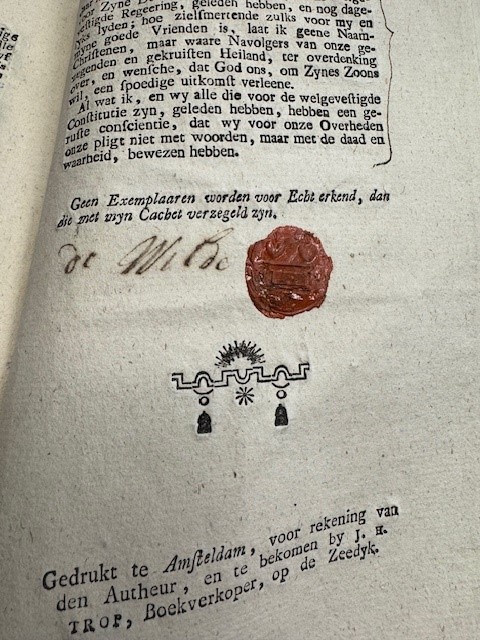 Zyne De
vestigde Regeering, geleden hebben, en nog dage-
lyks lyden; hoe zielſmertende zulks voor my en
zyne goede Vrienden is, laat ik geene Naam-
Chriſtenen, maar waare Navolgers van onze ge-
zegenden en gekruiſten Heiland, ter overdenking
over, en wenſche, dat God ons, om Zynes Zoons
wil, een ſpoedige uitkomſt verleene.
Al wat ik, en wy alle die voor de welgeveſtigde
Conſtitutie zyn, geleden hebben, hebben een ge-
ruſte conſcientie, dat wy voor onze Overheden
onze pligt niet met woorden, maar met de daad en
waarheid, bewezen hebben.
Geen Exemplaaren worden voor Echt erkend, dan
die met myn Cachet verzegeld zyn.
de Wilde
Gedrukt te Amſteldam, voor rekening van
den Autheur, en te bekomen by J. H.
TROP, Boekverkoper, op de Zeedyk.